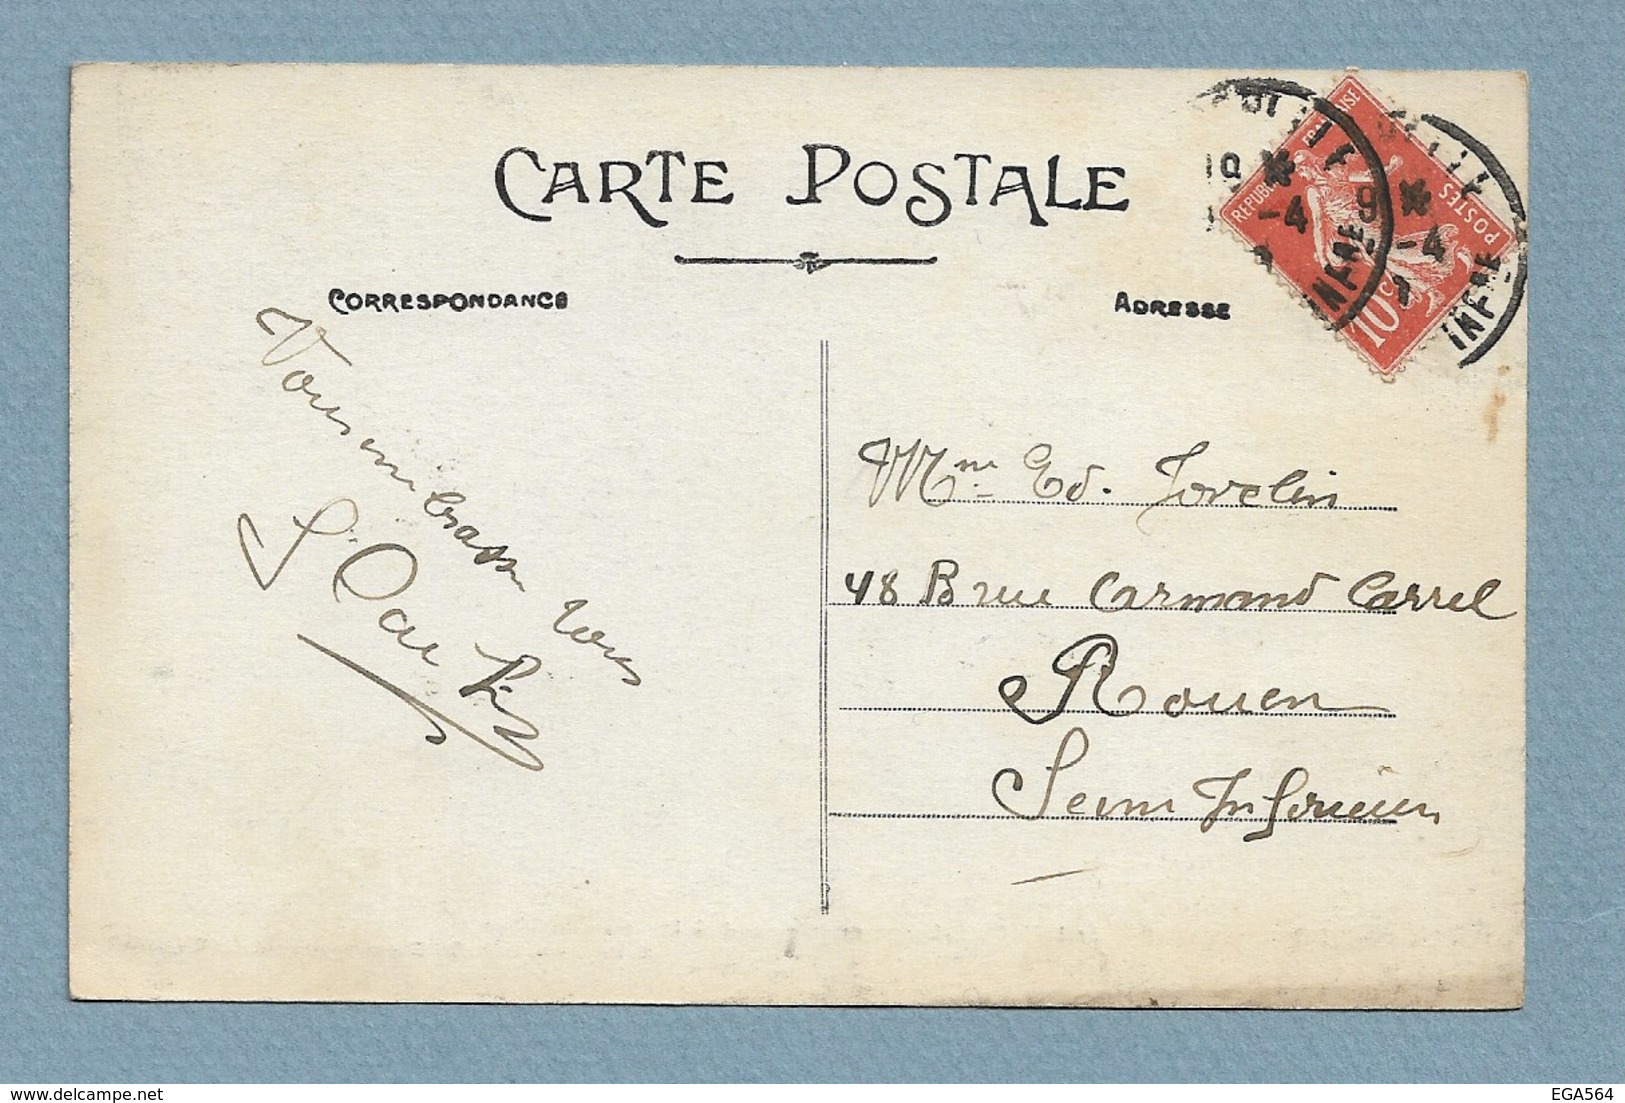 CARTE POSTALE
CORRESPONDANCE
ADRESSE
REPUBLIQUE FRANÇAISE
POSTES
10c
19 * -4
9 * -4
INFRE
INFRE
Vous embrasse tous
Mme Ed. Jovelin
48 B rue Armand Carrel
Rouen
Seine Inférieure
EGA564